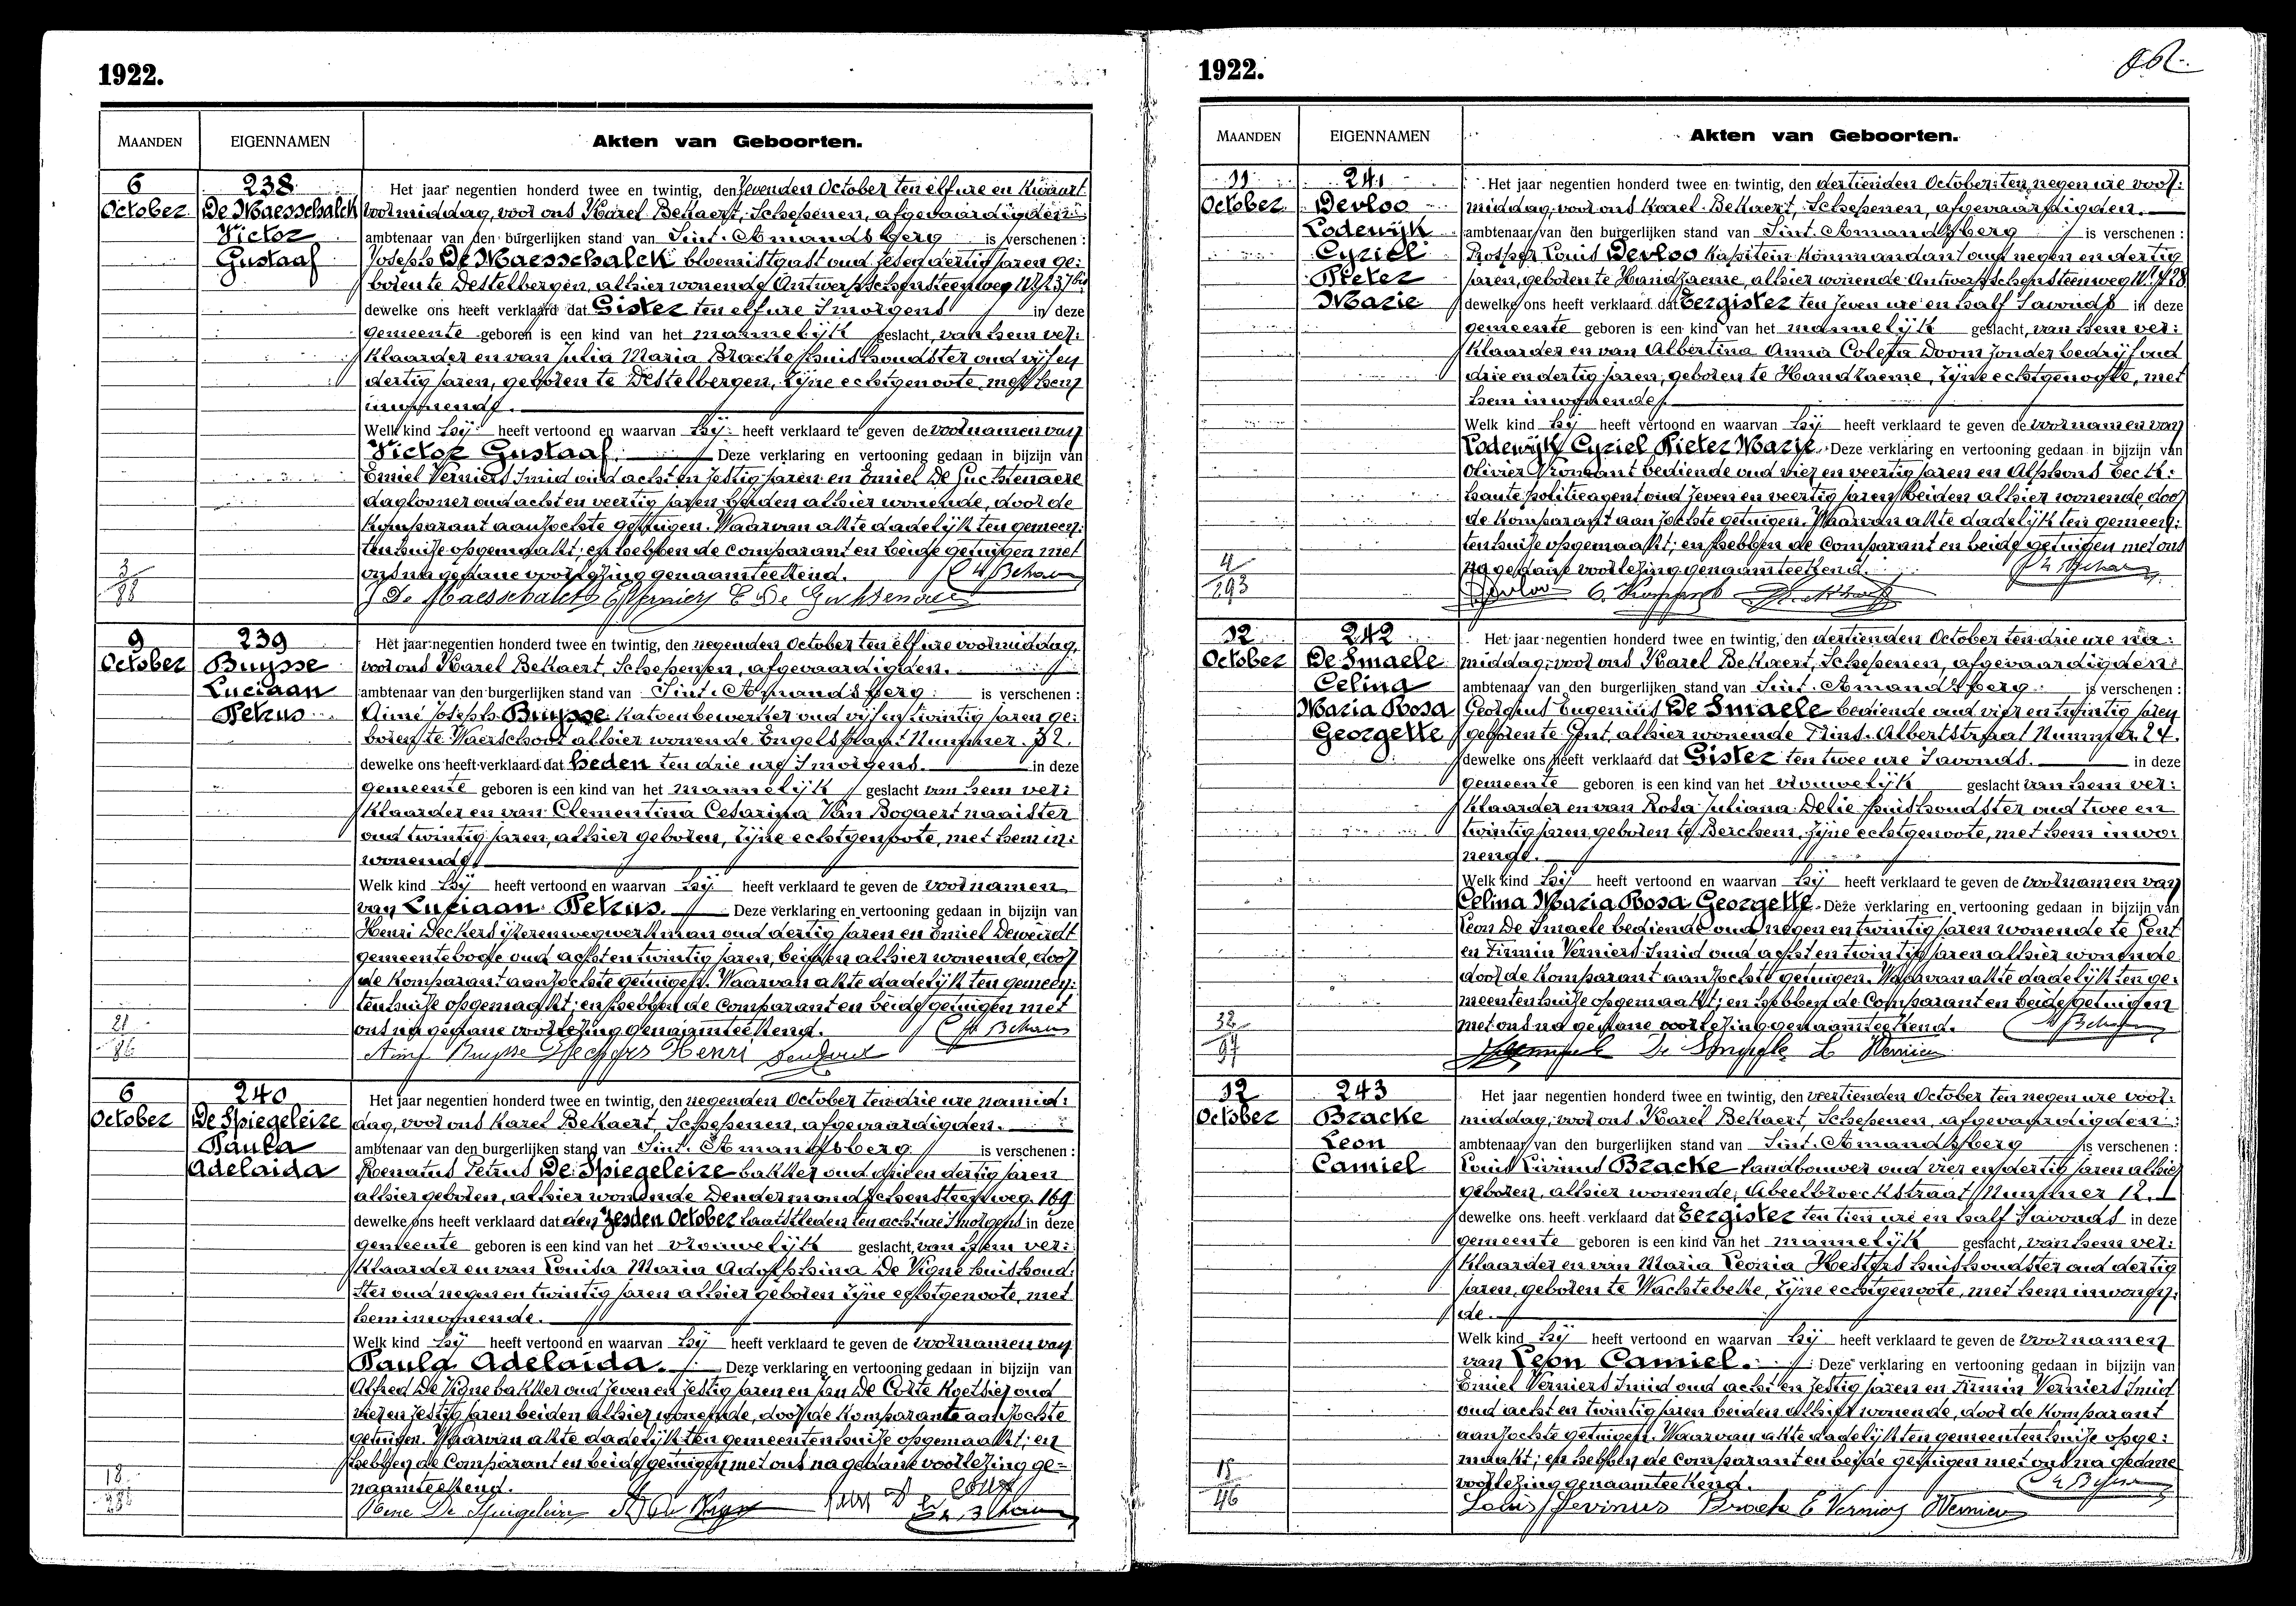 1922.
MAANDEN EIGENNAMEN Akten van Geboorten.
6 October
238
De Maesschalck
Victor
Gustaaf
Het jaar negentien honderd twee en twintig, den zevenden October ten elf ure en kwaart
voormiddag, voor ons Karel Bekaert, Schepenen, afgevaardigden
ambtenaar van den burgerlijken stand van Sint-Amandsberg is verschenen :
Joseph De Maesschalck bloemistgast oud zes en dertig jaren ge:
boren te Destelbergen, alhier wonende Antwerpschensteenweg
dewelke ons heeft verklaard dat Gister ten elf ure Smorgens in deze
gemeente geboren is een kind van het mannelijk geslacht, van hem ver:
klaarder en van Julia Maria Bracke huishoudster oud vijf en
dertig jaren, geboren te Destelbergen, zijne echtgenoote, met hem
inwonende.
Welk kind hij heeft vertoond en waarvan hij heeft verklaard te geven de voornamen van
Victor Gustaaf. Deze verklaring en vertooning gedaan in bijzijn van
Emiel Verniers Smid oud acht en zestig jaren en Emiel De Guchtenaere
daglooner oud acht en veertig jaren beiden alhier wonende, door de
komparant aanzochte getuigen. Waarvan akte dadelijk ten gemeen:
tenhuize opgemaakt; en hebben de comparant en beide getuigen met
ons na gedane voorlezing genaamteekend.
J De Maesschalck E Verniers E De Guchtenaere
3
88
9 October
239
Buysse
Luciaan
Petrus
Het jaar negentien honderd twee en twintig, den negenden October ten elf ure voormiddag,
voor ons Karel Bekaert, Schepenen, afgevaardigden.
ambtenaar van den burgerlijken stand van Sint-Amandsberg is verschenen :
Aimé Joseph Buysse katoenbewerker oud vijf en twintig jaren ge:
boren te Waerschoot alhier wonende Engelstraat Nummer 32.
dewelke ons heeft verklaard dat heden ten drie ure Smorgens. in deze
gemeente geboren is een kind van het mannelijk geslacht van hem ver:
klaarder en van Clementina Cesarina Van Bogaert naaister
oud twintig jaren, alhier geboren, zijne echtgenoote, met hem in:
wonende.
Welk kind hij heeft vertoond en waarvan hij heeft verklaard te geven de voornamen
van Luciaan Petrus. Deze verklaring en vertooning gedaan in bijzijn van
Henri Deckers ijzerenwegwerkman oud dertig jaren en Emiel Deweirdt
gemeentebode oud acht en twintig jaren, beiden alhier wonende, door
de komparant aanzochte getuigen. Waarvan akte dadelijk ten gemeen:
tenhuize opgemaakt; en hebben de comparant en beide getuigen met
ons na gedane voorlezing genaamteekend.
Aimé Buysse Deckers Henri
21
86
6 October
240
De Spiegeleire
Paula
Adelaida
Het jaar negentien honderd twee en twintig, den negenden October ten drie ure namid:
dag, voor ons Karel Bekaert, Schepenen, afgevaardigden.
ambtenaar van den burgerlijken stand van Sint-Amandsberg is verschenen :
Renatus Petrus De Spiegeleire bakker oud drie en dertig jaren
alhier geboren, alhier wonende Dendermondschensteenweg 169
dewelke ons heeft verklaard dat den zesden October laatstleden ten acht ure Smorgens in deze
gemeente geboren is een kind van het vrouwelijk geslacht, van hem ver:
klaarder en van Louisa Maria Adolphina De Vigne huishoud:
ster oud negen en twintig jaren alhier geboren zijne echtgenoote, met
hem inwonende.
Welk kind hij heeft vertoond en waarvan hij heeft verklaard te geven de voornamen van
Paula Adelaida. Deze verklaring en vertooning gedaan in bijzijn van
Alfred De Vigne bakker oud zeven en zestig jaren en Jan De Corte koetsier oud
vier en zestig jaren beiden alhier wonende, door de komparante aanzochte
getuigen. Waarvan akte dadelijk ten gemeentenhuize opgemaakt; en
hebben de comparant en beide getuigen met ons na gedane voorlezing ge=
naamteekend.
Rene De Spiegeleire
18
1922.
MAANDEN EIGENNAMEN Akten van Geboorten.
11 October
241
Devloo
Lodewijk
Cyriel
Pieter
Marie
Het jaar negentien honderd twee en twintig, den dertienden October ten negen ure voor:
middag, voor ons Karel Bekaert, Schepenen, afgevaardigden.
ambtenaar van den burgerlijken stand van Sint-Amandsberg is verschenen :
Prosper Louis Devloo kapitein kommandant oud negen en dertig
jaren, geboren te Handzaeme, alhier wonende Antwerpschensteenweg
dewelke ons heeft verklaard dat Eergister ten zeven ure en half Savonds in deze
gemeente geboren is een kind van het mannelijk geslacht, van hem ver:
klaarder en van Albertina Anna Coleta Doom zonder bedrijf oud
drie en dertig jaren, geboren te Handzaeme, zijne echtgenoote, met
hem inwonende.
Welk kind hij heeft vertoond en waarvan hij heeft verklaard te geven de voornamen van
Lodewijk Cyriel Pieter Marie. Deze verklaring en vertooning gedaan in bijzijn van
Olivier bediende oud vier en veertig jaren en Alphons Eeck:
haute politieagent oud zeven en veertig jaren beiden alhier wonende, door
de komparant aanzochte getuigen. Waarvan akte dadelijk ten gemeen:
tenhuize opgemaakt; en hebben de comparant en beide getuigen met ons
na gedane voorlezing genaamteekend.
4
193
12 October
242
De Smaele
Celina
Maria Rosa
Georgette
Het jaar negentien honderd twee en twintig, den dertienden October ten drie ure na:
middag, voor ons Karel Bekaert, Schepenen, afgevaardigden
ambtenaar van den burgerlijken stand van Sint-Amandsberg is verschenen :
Georgius Eugenius De Smaele bediende oud vier en twintig jaren
geboren te Gent, alhier wonende Prins Albertstraat Nummer 24.
dewelke ons heeft verklaard dat Gister ten twee ure Savonds. in deze
gemeente geboren is een kind van het vrouwelijk geslacht van hem ver:
klaarder en van Rosa Juliana Delie huishoudster oud twee en
twintig jaren geboren te Berchem, zijne echtgenoote, met hem inwo:
nende.
Welk kind hij heeft vertoond en waarvan hij heeft verklaard te geven de voornamen van
Celina Maria Rosa Georgette. Deze verklaring en vertooning gedaan in bijzijn van
Leon De Smaele bediende oud negen en twintig jaren wonende te Gent
en Firmin Verniers Smid oud acht en twintig jaren alhier wonende
door de komparant aanzochte getuigen. Waarvan akte dadelijk ten ge:
meentenhuize opgemaakt; en hebben de comparant en beide getuigen
met ons na gedane voorlezing genaamteekend.
De Smaele L
32
97
12 October
243
Bracke
Leon
Camiel
Het jaar negentien honderd twee en twintig, den veertienden October ten negen ure voor:
middag, voor ons Karel Bekaert, Schepenen, afgevaardigden
ambtenaar van den burgerlijken stand van Sint-Amandsberg is verschenen :
Louis Livinus Bracke landbouwer oud vier en dertig jaren alhier
geboren, alhier wonende, Abeelbroeckstraat Nummer 12.
dewelke ons heeft verklaard dat Eergister ten tien ure en half Savonds in deze
gemeente geboren is een kind van het mannelijk geslacht, van hem ver:
klaarder en van Maria Leonia Hesters huishoudster oud dertig
jaren, geboren te Wachtebeke, zijne echtgenoote, met hem inwonen:
de.
Welk kind hij heeft vertoond en waarvan hij heeft verklaard te geven de voornamen
van Leon Camiel. Deze verklaring en vertooning gedaan in bijzijn van
Emiel Verniers Smid oud acht en zestig jaren en Firmin Verniers Smid
oud acht en twintig jaren beiden alhier wonende, door de komparant
aanzochte getuigen. Waarvan akte dadelijk ten gemeentenhuize opge:
maakt; en hebben de comparant en beide getuigen met ons na gedane
voorlezing genaamteekend.
Louis Levinus Bracke E Verniers
46